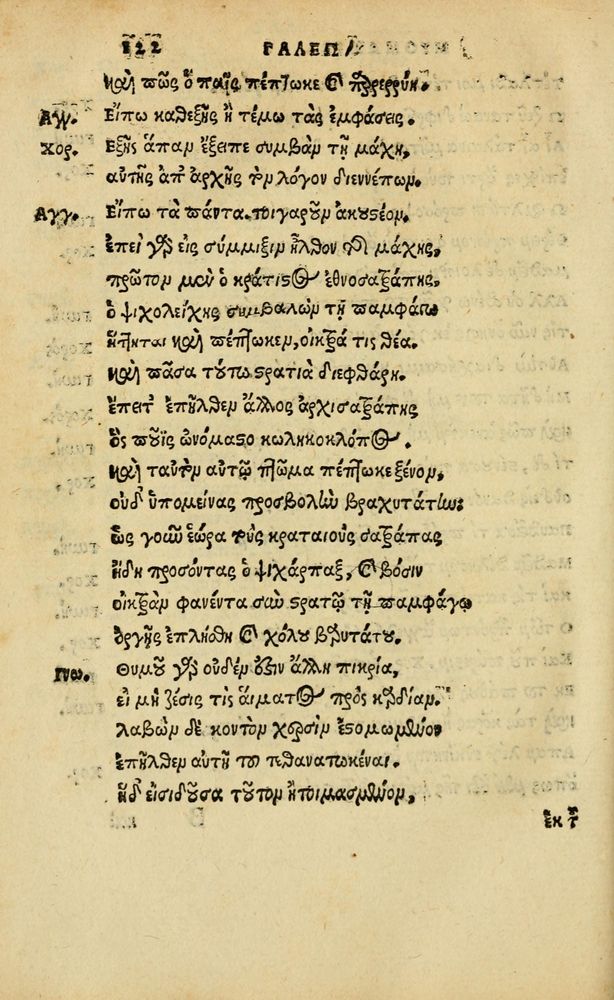 122 ΓΑΛΕΩ
καὶ πῶς ὁ παῖς πέπτωκε καὶ παρερρύη.
Αγγ. Εἴπω καθεξῆς ἢ τέμω τὰς ἐμφάσεις.
χορ. Εξῆς ἅπαν ἔξειπε συμβὰν τῇ μάχῃ,
αὐτῆς ἀπ' ἀρχῆς τὸν λόγον διεννέπων.
Αγγ. Εἴπω τὰ πάντα. τοιγαροῦν ἀκουστέον.
ἐπεὶ γὰρ εἰς σύμμιξιν ἦλθον τῆς μάχης,
πρῶτον μὲν ὁ κράτιστος ἐθνοσατράπης,
ὁ ψιχολείχης συμβαλὼν τῇ παμφάγω
ἥττηται καὶ πέπτωκεν, οἰκτρά τις θέα.
καὶ πᾶσα τούτου στρατιὰ διεφθάρη.
ἔπειτ' ἐπῆλθεν ἄλλος ἀρχισατράπης
ὃς τοῖς ὠνόμαστο κωληκοκλόπος.
καὶ ταὐτὸν αὐτῷ πτῶμα πέπτωκε ξένον,
οὐδ' ὑπομείνας προσβολὴν βραχυτάτην:
ὡς γοῦν ἑώρα τοὺς κραταιοὺς σατράπας
ἤδη προσόντας ὁ ψιχάρπαξ, καὶ βόσιν
οἰκτρὰν φανέντα σὺν στρατῷ τῇ παμφάγω
ὀργῆς ἐπλήσθη καὶ χόλου βαρυτάτου.
Γνω. Θυμοῦ γὰρ οὐδέν ἐστιν ἄλλη πικρία,
εἰ μὴ ζέσις τις αἵματος πρὸς καρδίαν.
λαβὼν δὲ κοντὸν χερσὶν ἐστομωμένον
ἐπῆλθεν αὐτῇ τοῦ τεθανατωκέναι.
ἡ δ' εἰσιδοῦσα τοῦτον ἡτοιμασμένον,
ἐκ τ